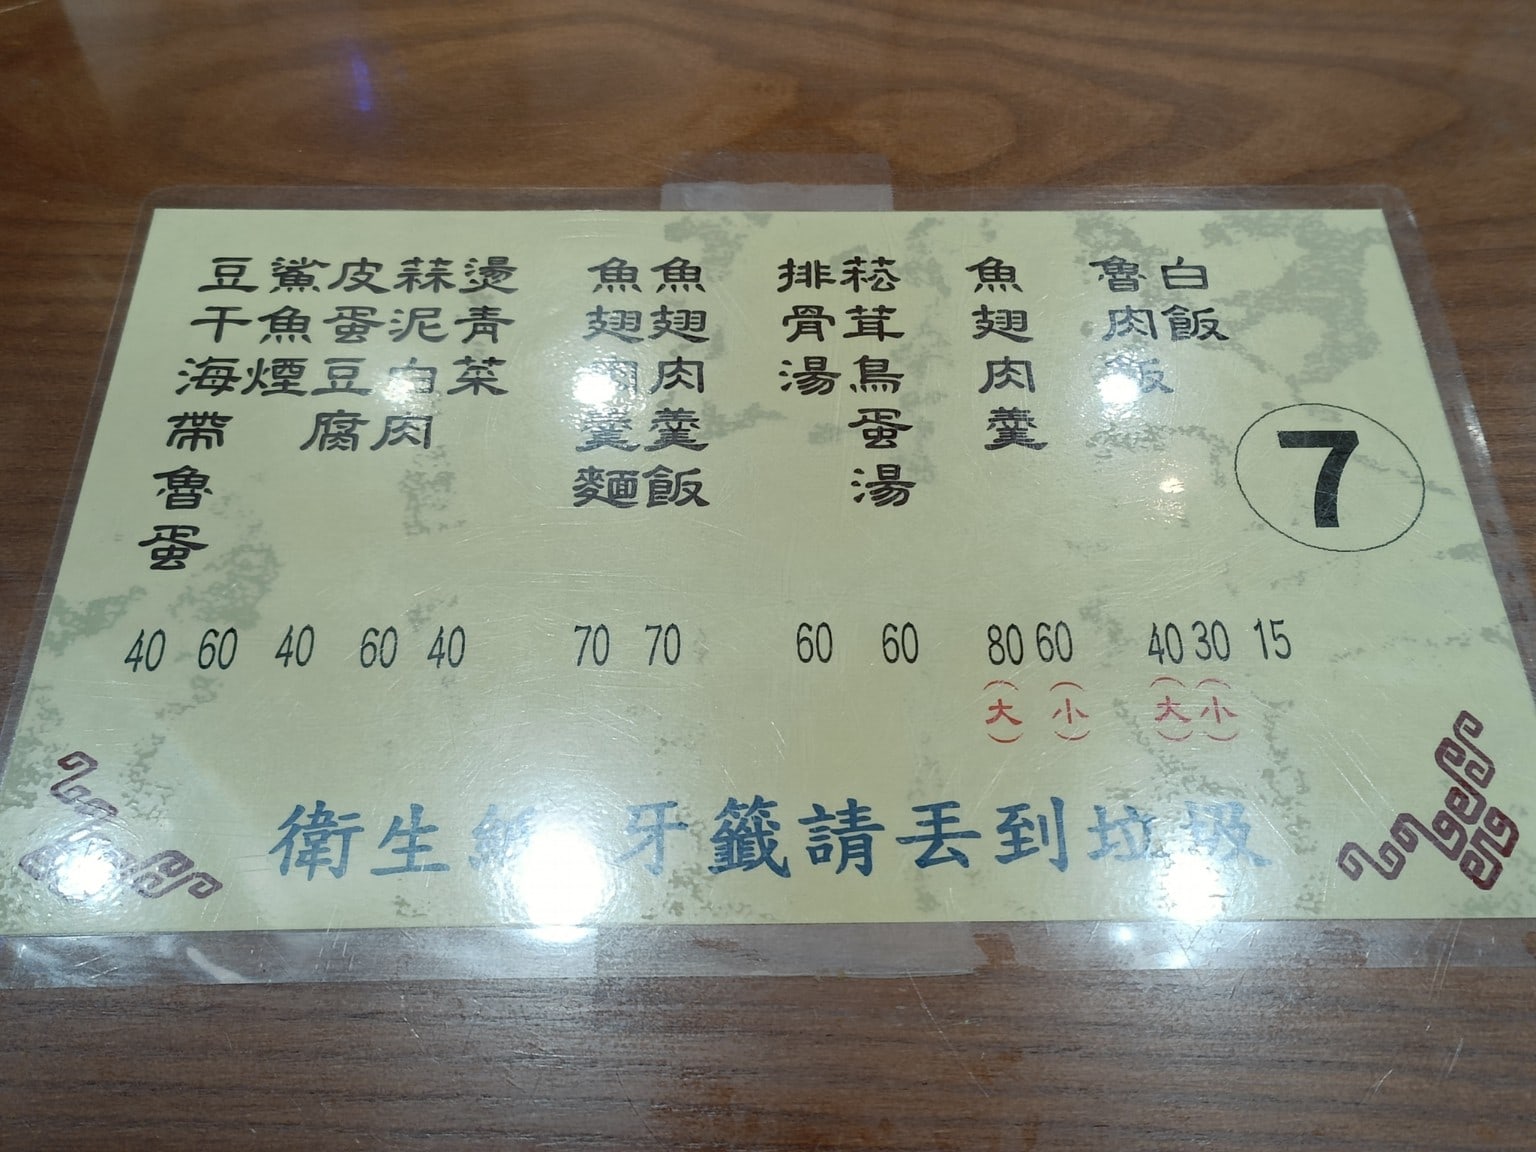 白飯
15
魯肉飯
40 30
(大) (小)
魚翅肉羹
80 60
(大) (小)
菘茸鳥蛋湯
60
排骨湯
60
魚翅肉羹飯
70
魚翅肉羹麵
70
燙青菜
40
蒜泥白肉
60
皮蛋豆腐
40
鯊魚煙
60
豆干海帶魯蛋
40
7
衛生紙 牙籤請丟到垃圾